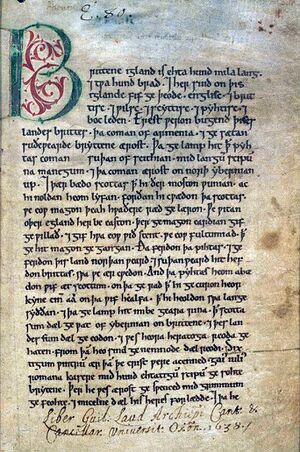 E. 80.
Brittene igland is ehta hund mila lang.
⁊ tƿa hund brad. ⁊ her sind on þis
iglande fif geþeode. englisc. ⁊ brit
tisc. ⁊ ƿilsc. ⁊ scyttisc. ⁊ pyhtisc. ⁊
boc leden. Erest ƿeron bugend þises
landes brittes. þa coman of armenia. ⁊ gesætan
suðeƿearde bryttene ærost. Þa gelamp hit þ̅ pyh
tas coman suþan of scithian. mid langū scipū
na manegum. ⁊ þa coman ærost on norþ ybernian
up. ⁊ þær bædo scottas þ̅ hi ðer moston ƿunian. ac
hi noldan heom lyfan. forðan hi cƿædon þa scottas.
ƿe eoƿ magon þeah hƿaðere ræd gelæron. Ƿe ƿitan
oþer egland her be easton. þer ge magon eardian gif
ge ƿillað. ⁊ gif hƿa eoƿ ƿiðstent. ƿe eoƿ fultumiað. þ̅
ge hit magon gegangan. Ða ferdon þa pihtas. ⁊ ge
ferdon þis land norþanƿeard. ⁊ suþanƿeard hit hef
don brittas. sƿa ƿe ær cƿedon. And þa pyhtas heom abæ
don ƿif æt scottum. on þa gerad þ̅ hi gecuron heora
kyne cin aa on þa ƿif healfa. þ̅ hi heoldon sƿa lange
syððan. ⁊ þa gelamp hit imbe geara rina. þ̅ scotta
sum dæl geƿat of ybernian on brittene. ⁊ þes lan
des sum dæl geeodon. ⁊ ƿes heora heratoga reoda ge
haten. from þā heo sind genemnode dæl reodi.
ƿintrum ær þā þe crist ƿere acenned. gaius iulius
romana kasere mid hund ehtatigū scipū gesohte
brytene. Þer he ƿes ærost gesƿenced mid grimmum
gefeohte. ⁊ micelne dæl his heres forlædde. ⁊ þa he
Liber Guil. Laud Archiepi Cant. &
Cancellar. Universit. Oxon. 1638.